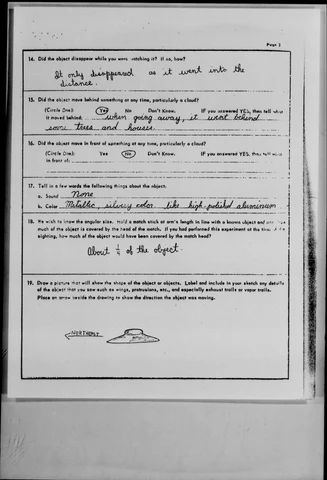 Page 3
14. Did the object disappear while you were watching it? If so, how?
It only disappeared as it went into the
distance.
15. Did the object move behind something at any time, particularly a cloud?
(Circle One): Yes No Don't Know. IF you answered YES, then tell what
it moved behind: when going away, it went behind
some trees and houses.
16. Did the object move in front of something at any time, particularly a cloud?
(Circle One): Yes No Don't Know. IF you answered YES, then tell what
in front of:
17. Tell in a few words the following things about the object:
a. Sound None
b. Color Metallic, silvery color like high-polished aluminum
18. We wish to know the angular size. Hold a match stick at arm's length in line with a known object and note how
much of the object is covered by the head of the match. If you had performed this experiment at the time of the
sighting, how much of the object would have been covered by the match head?
About of the object.
19. Draw a picture that will show the shape of the object or objects. Label and include in your sketch any details
of the object that you saw such as wings, protrusions, etc., and especially exhaust trails or vapor trails.
Place an arrow beside the drawing to show the direction the object was moving.
NORTHEAST